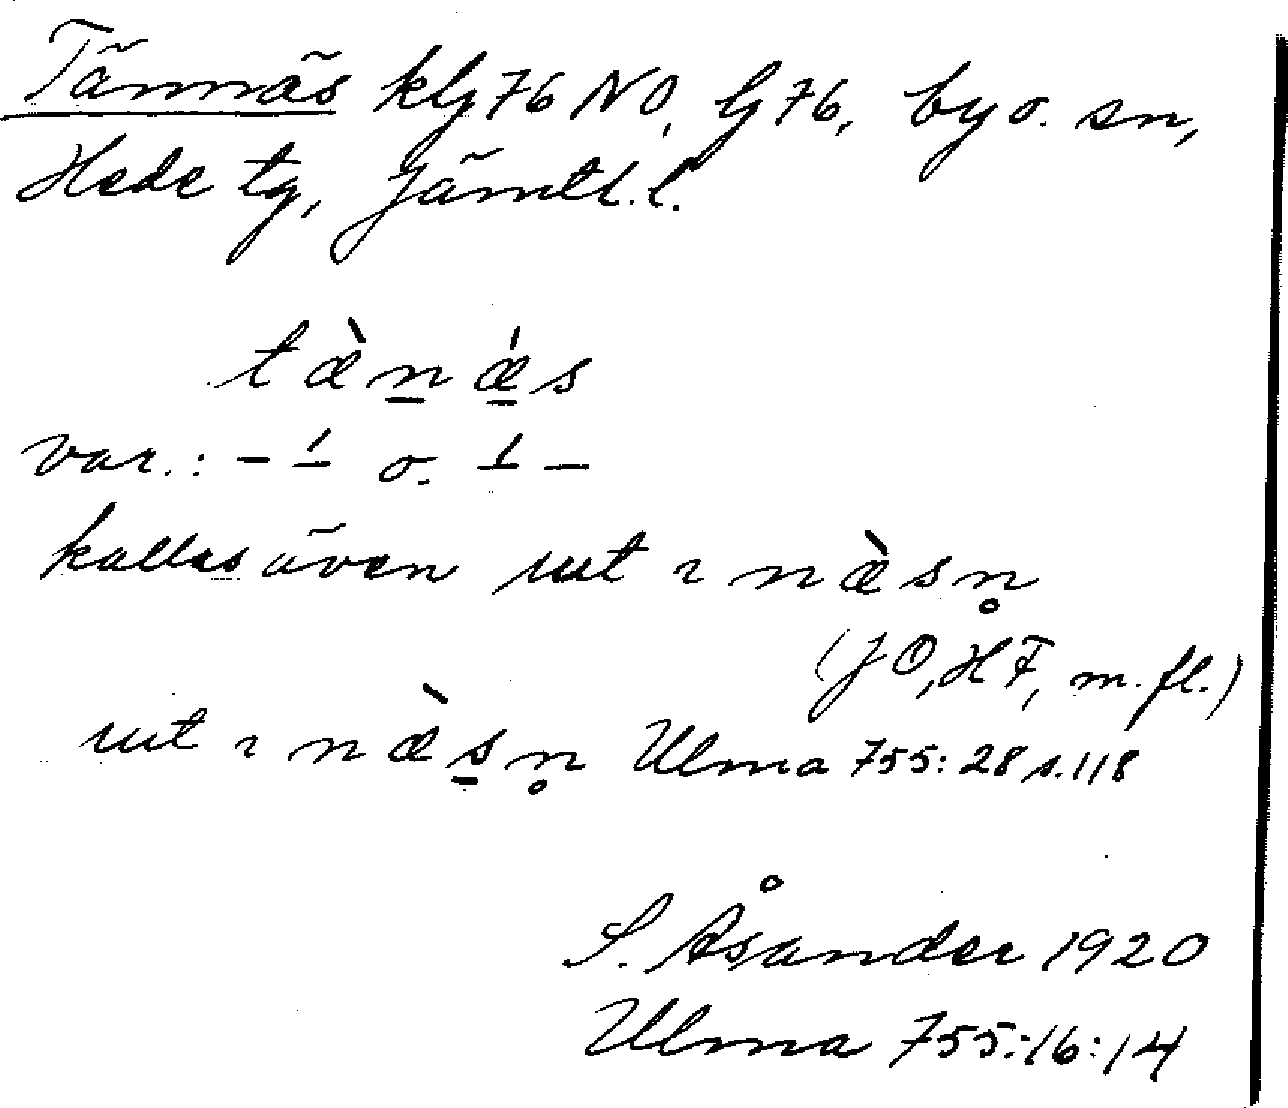 Tännäs kbg 76 NO, bg 76, by o. sn,
Hede tg, Jämtl. l.
tæ̀n̠ǽ̠s
var.: – –́ o. –́ –
kallas även ut ı næ̀sn̥
(JO, HF, m. fl.)
ut ı næ̀s̠n̥ Ulma 755:28 s. 118
S. Åsander 1920
Ulma 755:16:14